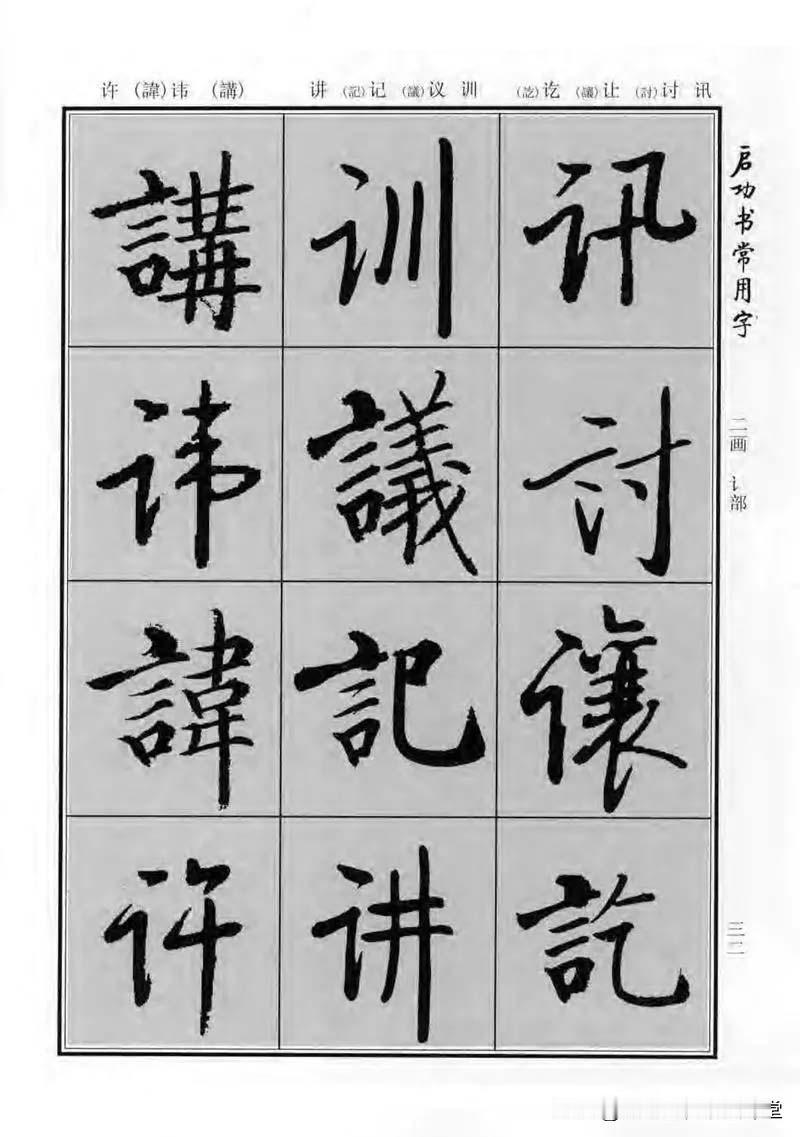 讯 讨(討) 让(讓) 讫(訖) 训 议(議) 记(記) 讲 (講) 讳(諱) 许
启功书常用字
二画 讠部
三二
讯討讓訖
训議記讲
講讳諱许